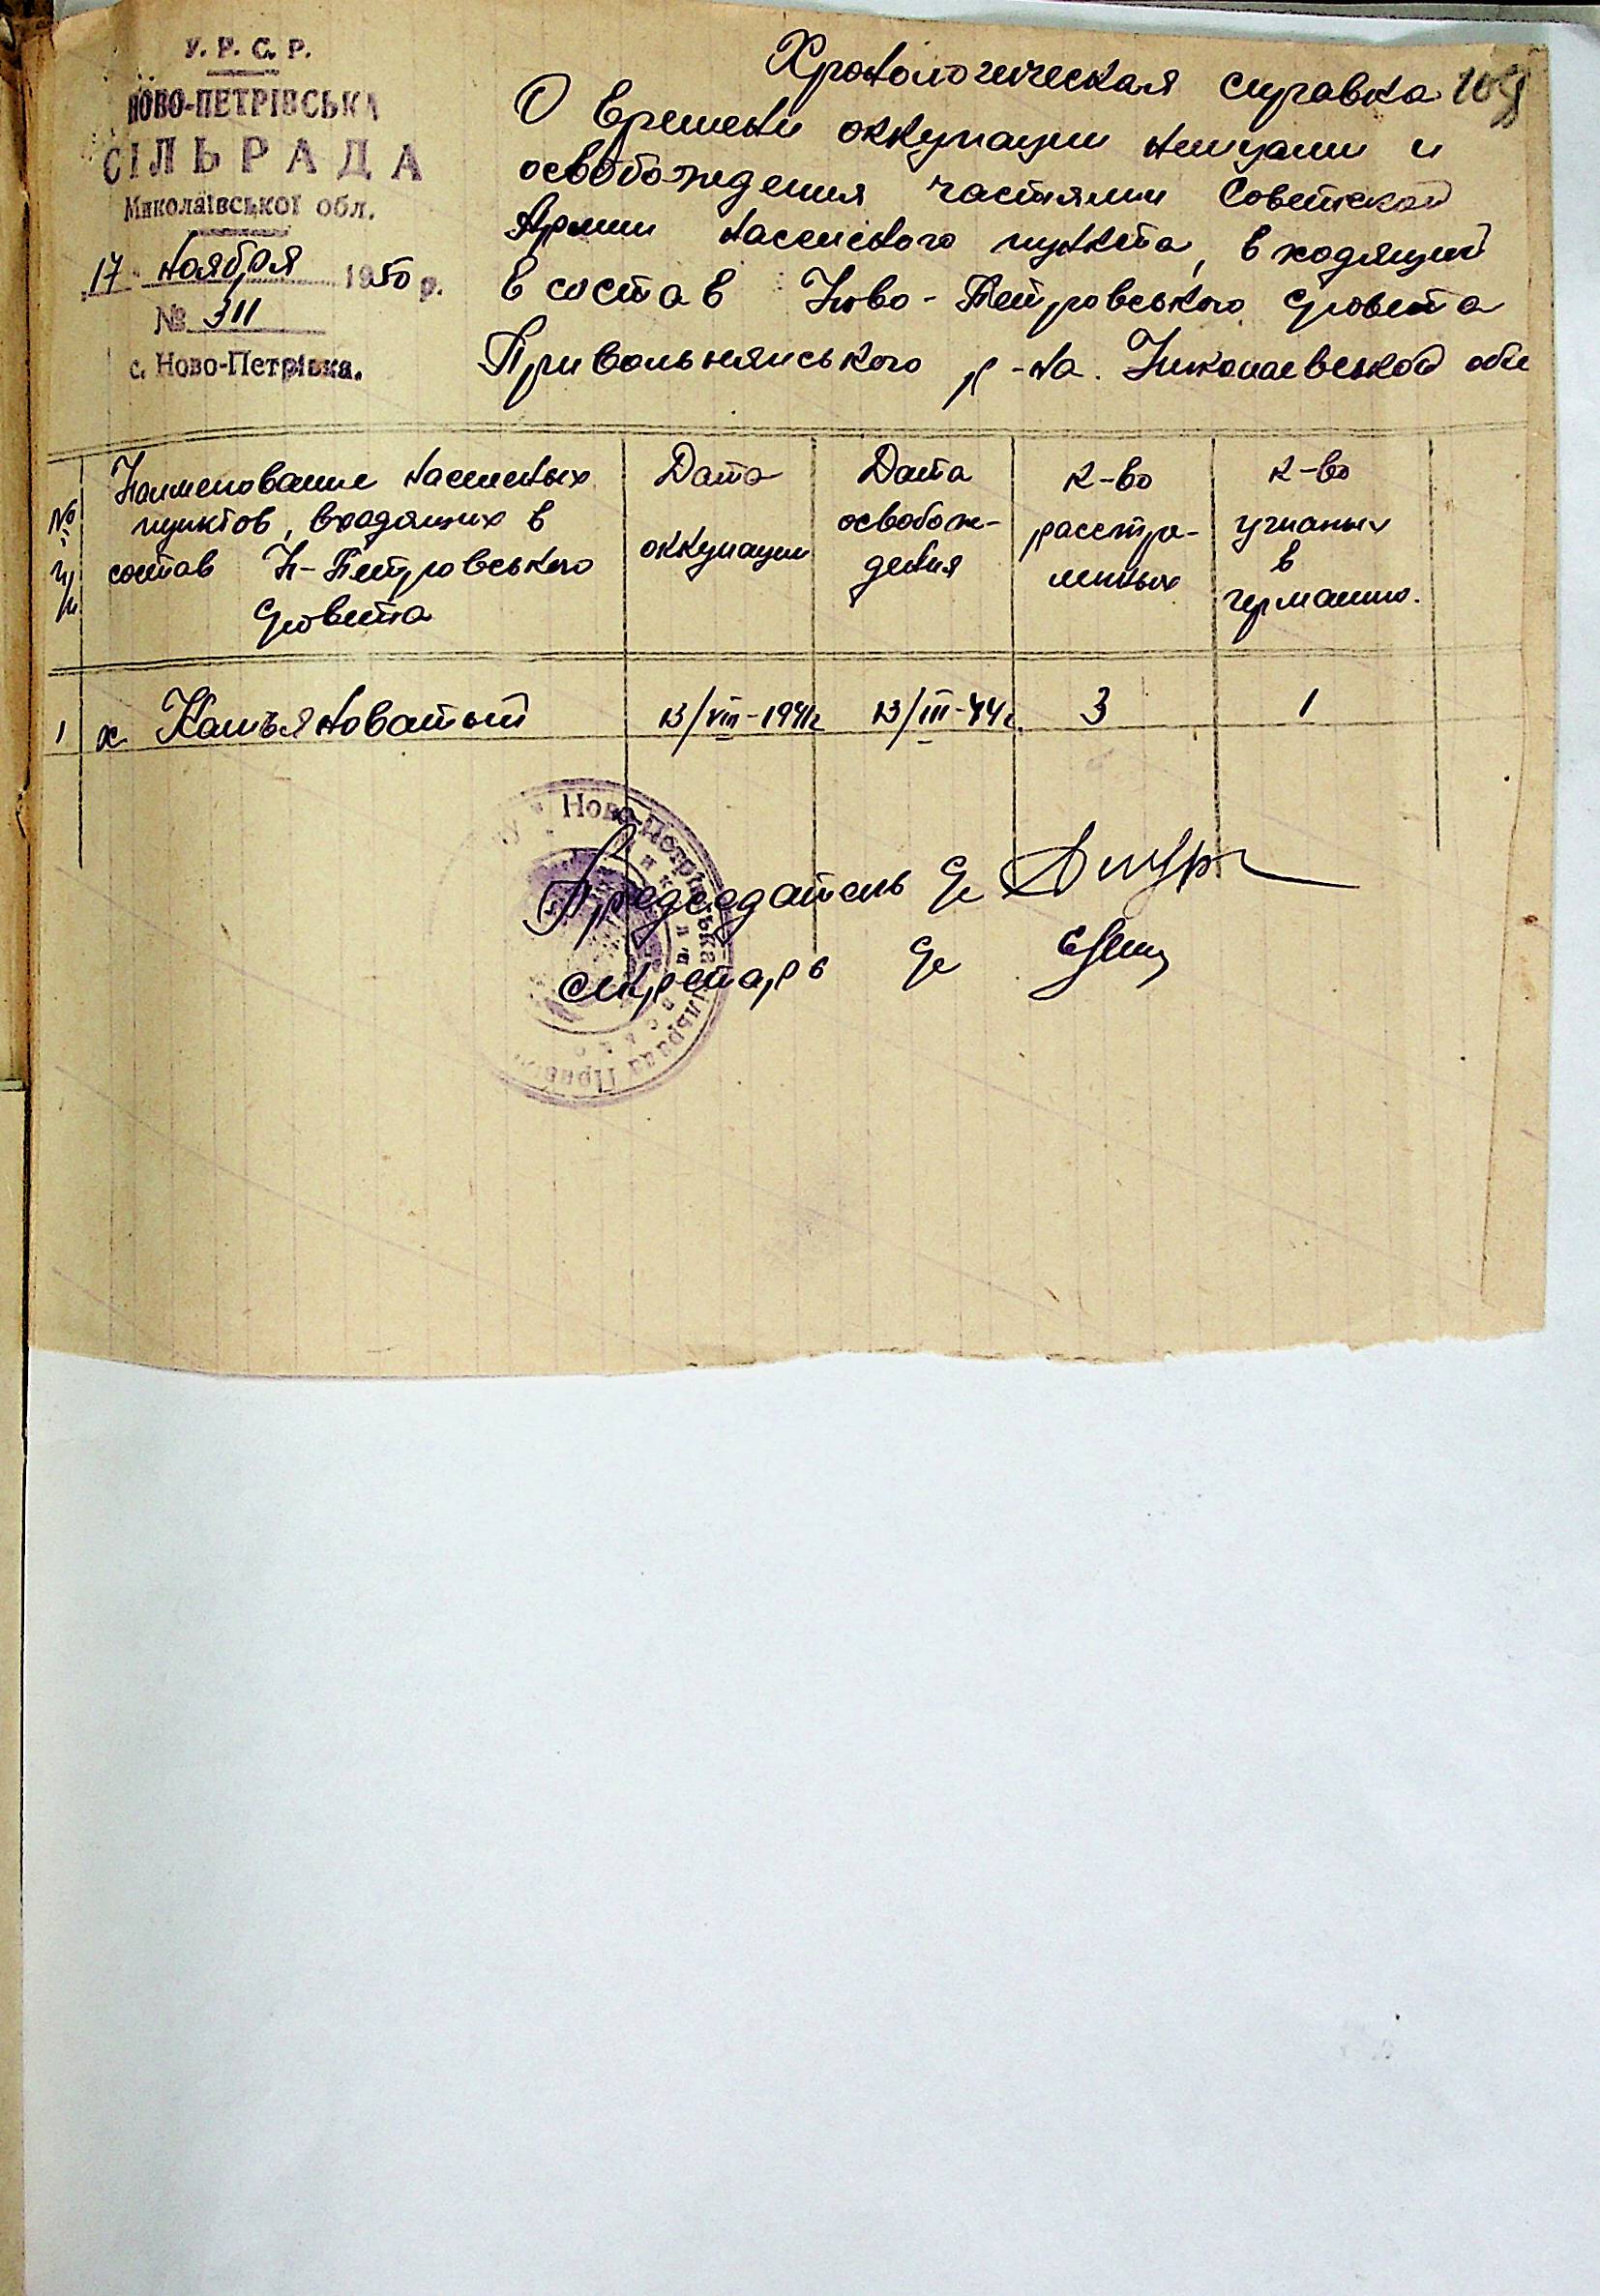 У. Р. С. Р.
НОВО-ПЕТРІВСЬКА
СІЛЬРАДА
Миколаївської обл.
17 ноября 1950 р.
№ 311
с. Ново-Петрівка.
Хронологическая справка
О времени оккупации немцами и
освобождения частями Советской
Армии населеного пункта, входящий
в состав Ново-Петровського с/совета
Привольнянського р-на. Николаевской обл
№ п/п
Наименование населеных
пунктов, входящих в
состав Н-Петровського
с/совета
Дата
оккупации
Дата
освобож-
дения
к-во
расстре-
леных
к-во
угнаных
в
германию.
1 х. Камъяноватый 13/VIII-1941г 13/III-44г. 3 1
Ново-Петрівська сільрада Привол
Председатель с/с
секретарь с/с